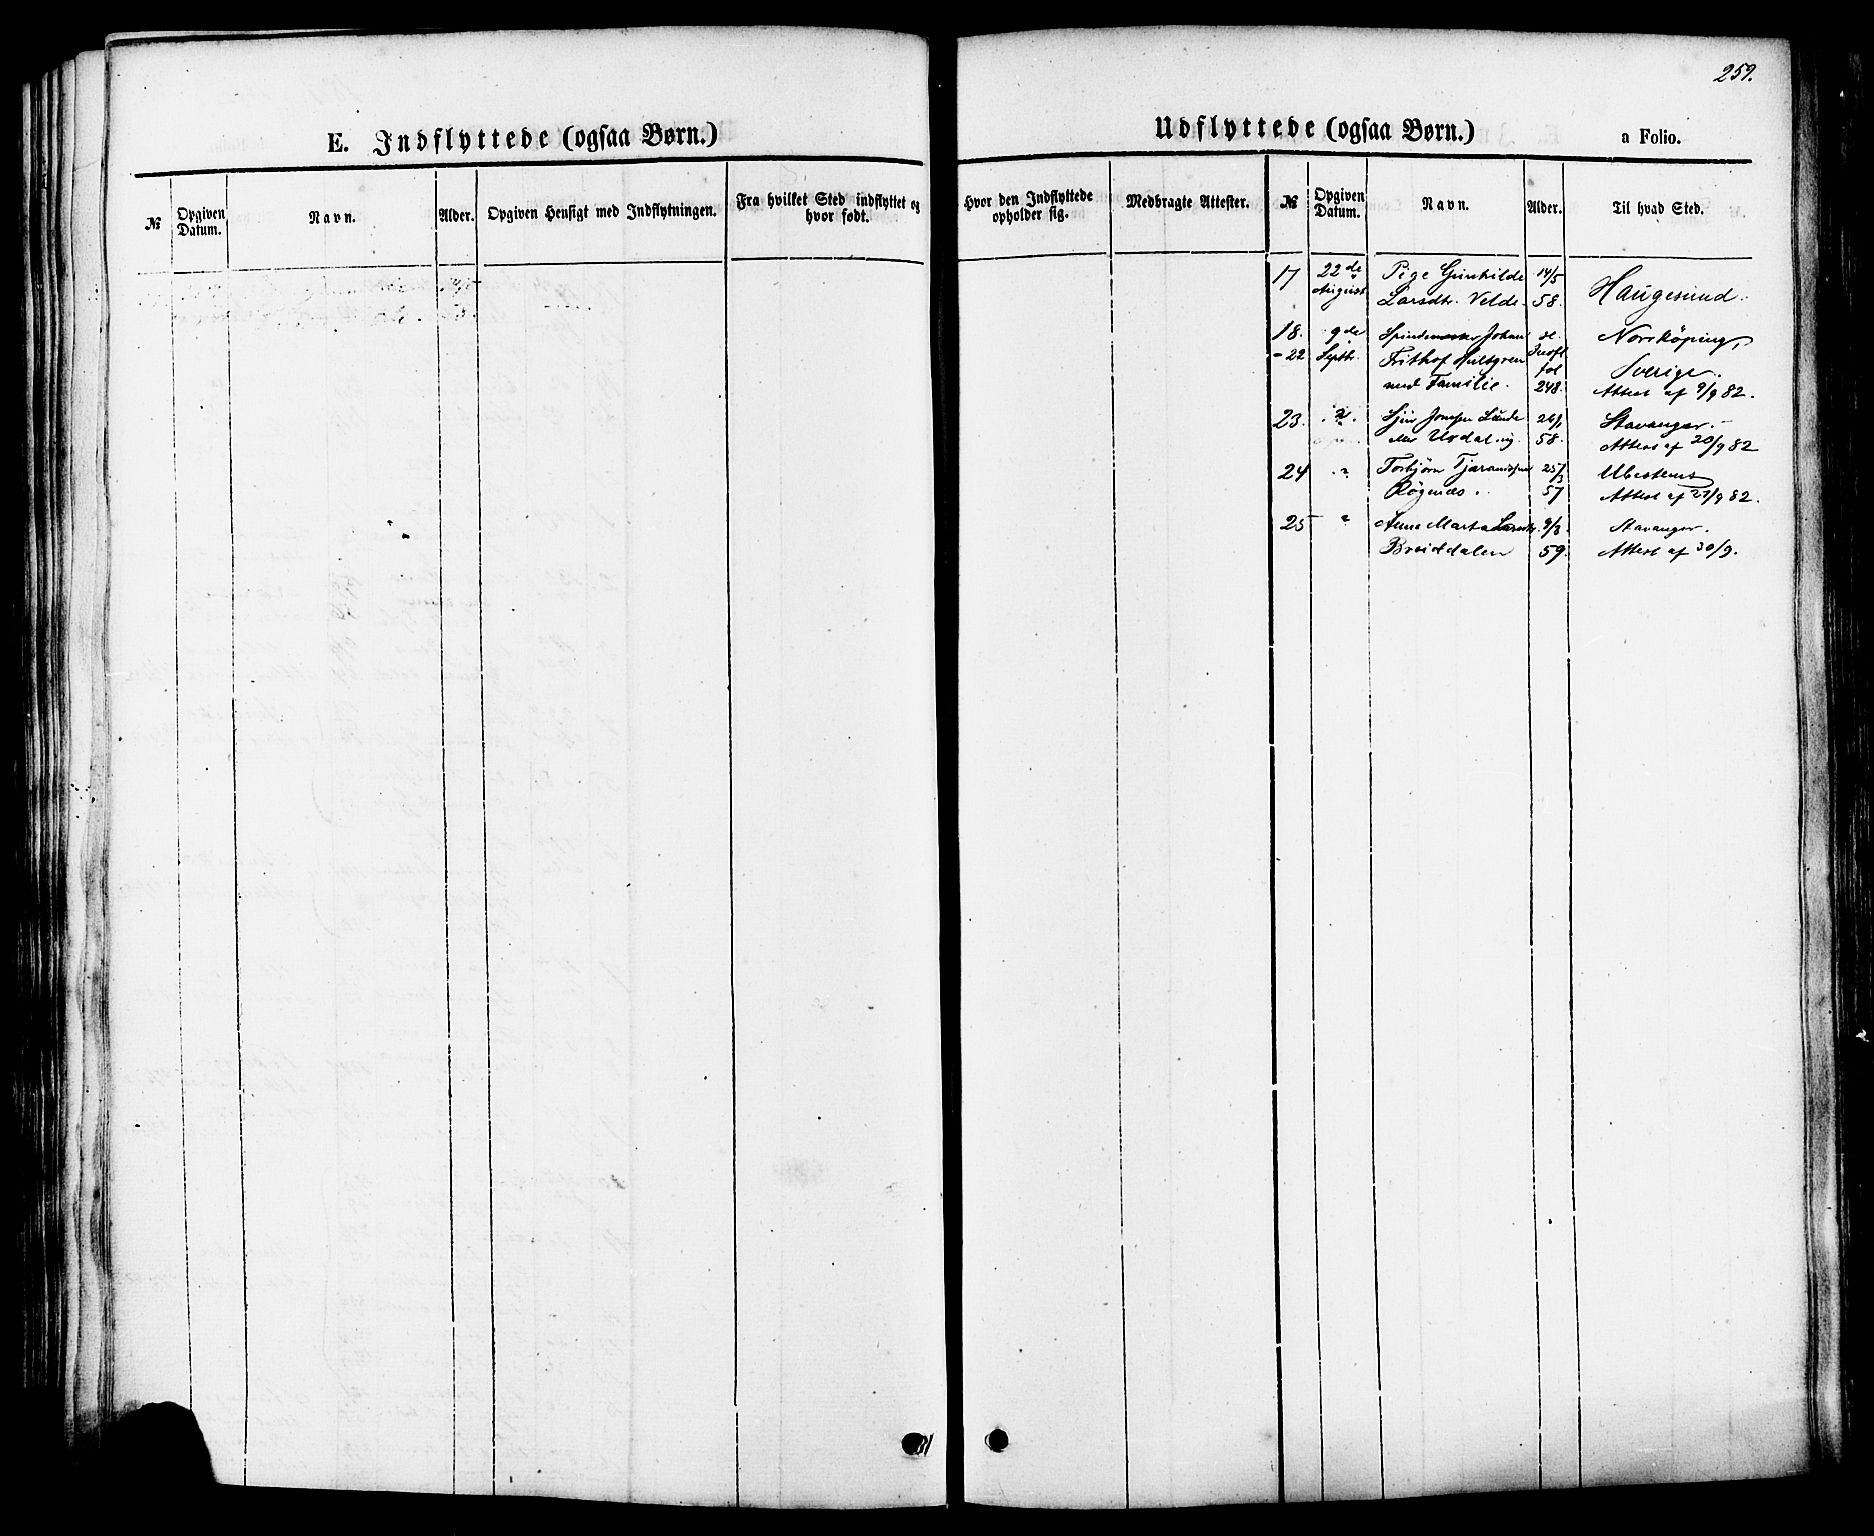 259.
E. Indflyttede (ogsaa Børn.)
Udflyttede (ogsaa Børn.)
a Folio.
№
Opgiven Datum.
Navn.
Alder.
Opgiven Hensigt med Indflytningen.
Fra hvilket Sted indflyttet og hvor født.
Hvor den Indflyttede opholder sig.
Medbragte Attester.
№
Opgiven Datum.
Navn.
Alder.
Til hvad Sted.
17 22de Pige Gunhilde 14/5
August Larsdtr. Velde 58. Haugesund.
18. 9de Johan Norrköping,
-22 Septbr. Frithof Hultgren Indfl Sverige.
med Familie. fol 248. Attest af 9/9 82.
23. " Lunde Stavanger.
58. Attest af 20/9 82
24 " Torbjørn 25/3 Ubestemt
57 Attest af 27/9 82.
25 " Anne Marta Larsdtr. 9/3 Stavanger.
Breiddalen 59. Attest af 30/9.